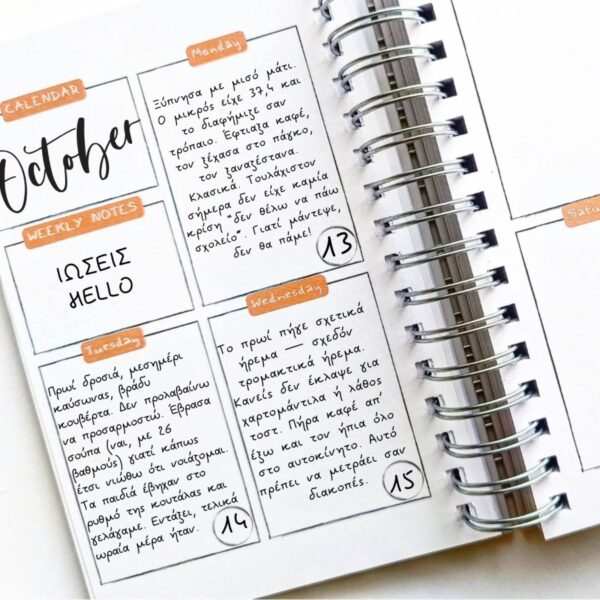 CALENDAR
October
WEEKLY NOTES
ΙΩΣΕΙΣ
HELLO
Monday
Ξύπνησα με μισό μάτι.
Ο μικρός είχε 37,4 και
το διαφήμιζε σαν
τρόπαιο. Έφτιαξα καφέ,
τον ξέχασα στο πάγκο,
τον ξαναζέστανα.
Κλασικά. Τουλάχιστον
σήμερα δεν είχε καμία
κρίση "δεν θέλω να πάω
σχολείο". Γιατί μάντεψε,
δεν θα πάμε!
13
Tuesday
Πρωί δροσιά, μεσημέρι
καύσωνας, βράδυ
κουβέρτα. Δεν προλαβαίνω
να προσαρμοστώ. Έβρασα
σούπα (ναι, με 26
βαθμούς) γιατί κάπως
έτσι νιώθω ότι νοιάζομαι.
Τα παιδιά έβηχαν στο
ρυθμό της κουτάλας και
γελάγαμε. Εντάξει, τελικά
ωραία μέρα ήταν.
14
Wednesday
Το πρωί πήγε σχετικά
ήρεμα — σχεδόν
τρομακτικά ήρεμα.
Κανείς δεν έκλαψε για
χαρτομάντιλα ή λάθος
τοστ. Πήρα καφέ απ'
έξω και τον ήπια όλο
στο αυτοκίνητο. Αυτό
πρέπει να μετράει σαν
διακοπές.
15
Satu